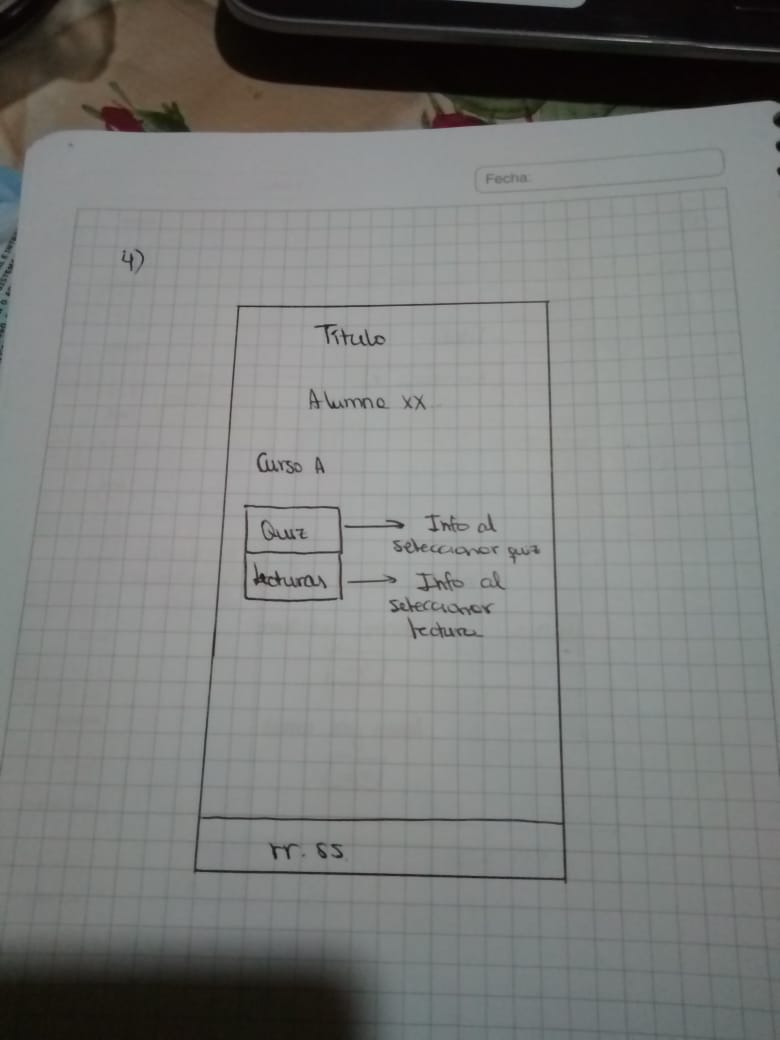 Fecha:
4)
Título
Alumno xx
Curso A
Quiz
Info al
seleccionar quiz
Lecturas
Info al
seleccionar
lectura
rr. ss.